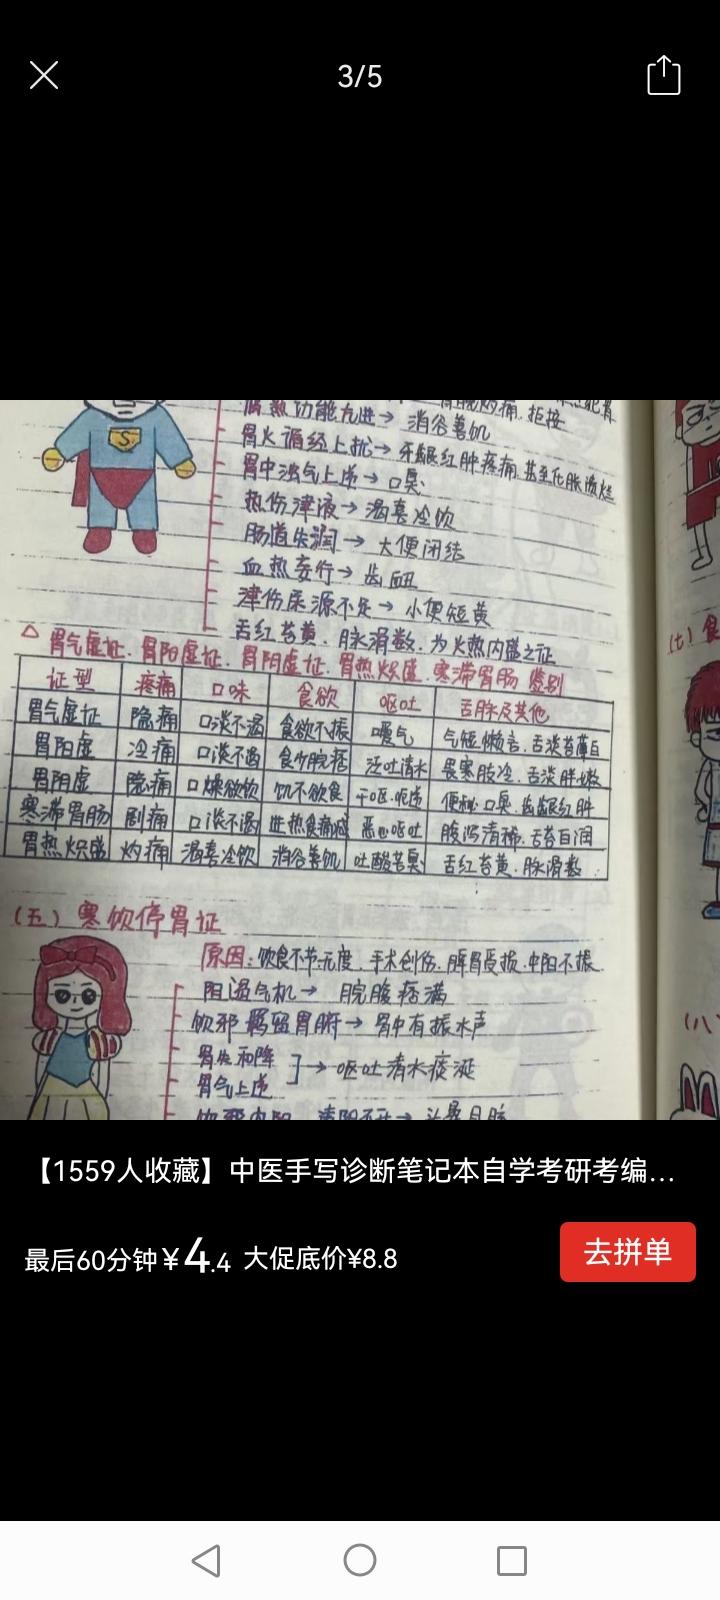 3/5
胃脘灼痛.拒接
胃热功能亢进→消谷善饥
胃火循经上扰→牙龈红肿疼痛.甚至化脓溃烂
胃中浊气上逆→口臭
热伤津液→渴喜冷饮
肠道失润→大便闭结
血热妄行→齿衄
津伤尿源不足→小便短黄
舌红苔黄.脉滑数.为火热内盛之证
△胃气虚证.胃阳虚证.胃阴虚证.胃热炽盛.寒滞胃肠 鉴别
证型 疼痛 口味 食欲 呕吐 舌脉及其他
胃气虚证 隐痛 口淡不渴 食欲不振 嗳气 气短懒言.舌淡苔薄白
胃阳虚 冷痛 口淡不渴 食少脘痞 泛吐清水 畏寒肢冷.舌淡胖嫩
胃阴虚 隐痛 口燥欲饮 饥不欲食 干呕.呃逆 便秘.口臭.齿龈红肿
寒滞胃肠 剧痛 口淡不渴 进热食痛减 恶心呕吐 腹泻清稀.舌苔白润
胃热炽盛 灼痛 渴喜冷饮 消谷善饥 吐酸苦臭 舌红苔黄.脉滑数
(五)寒饮停胃证
原因:饮食不节无度.手术创伤.脾胃受损.中阳不振
阻遏气机→脘腹痞满
饮邪留胃腑→胃中有振水声
胃失和降
胃气上逆
]→呕吐清水痰涎
(七)食
(八
S
【1559人收藏】中医手写诊断笔记本自学考研考编...
最后60分钟¥4.4 大促底价¥8.8
去拼单